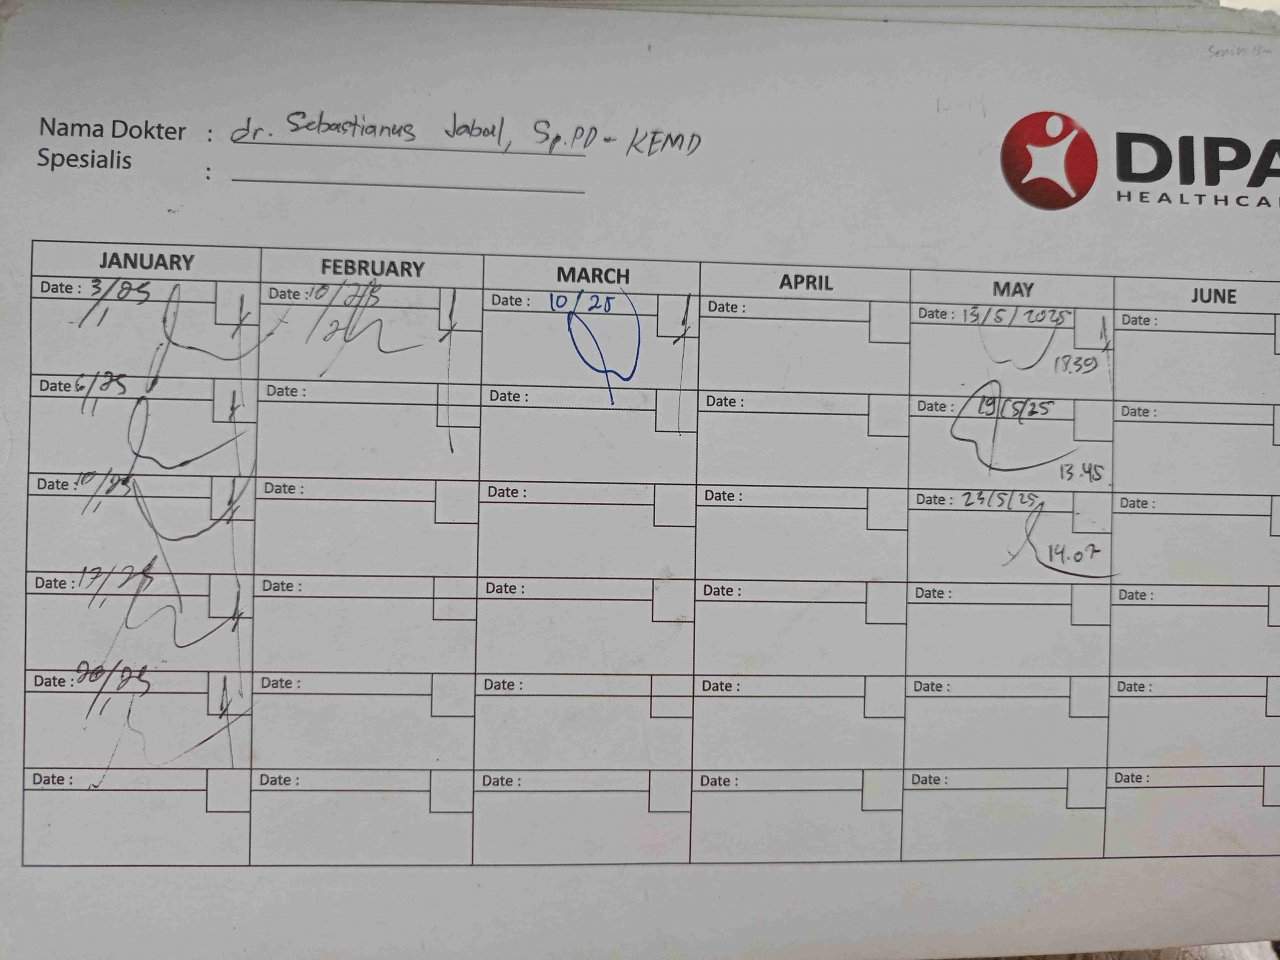 Nama Dokter : dr. Sebastianus Jabul, Sp.PD - KEMD
Spesialis :
DIPA
HEALTHCA
JANUARY FEBRUARY MARCH APRIL MAY JUNE
Date : 3/25 Date : 10/25 Date : 10/25 Date : Date : 13/5/2025 Date :
18.39
Date 6/25 Date : Date : Date : Date : 19/5/25 Date :
13.45
Date : 10/25 Date : Date : Date : Date : 23/5/25 Date :
14.07
Date : 17/25 Date : Date : Date : Date : Date :
Date : 20/25 Date : Date : Date : Date : Date :
Date : Date : Date : Date : Date : Date :